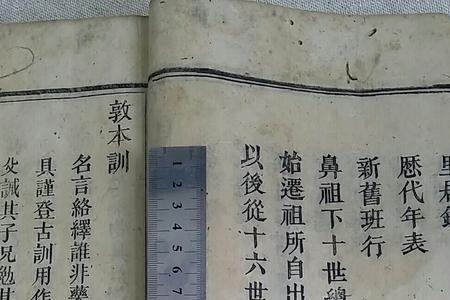 歷代年表
新舊班行
鼻祖下十世總
始遷祖所自出
以後從十六世
敦本訓
名言絡繹誰非藥
具謹登古訓用作
誠其子兄勉其
1 2 3 4 5 6 7